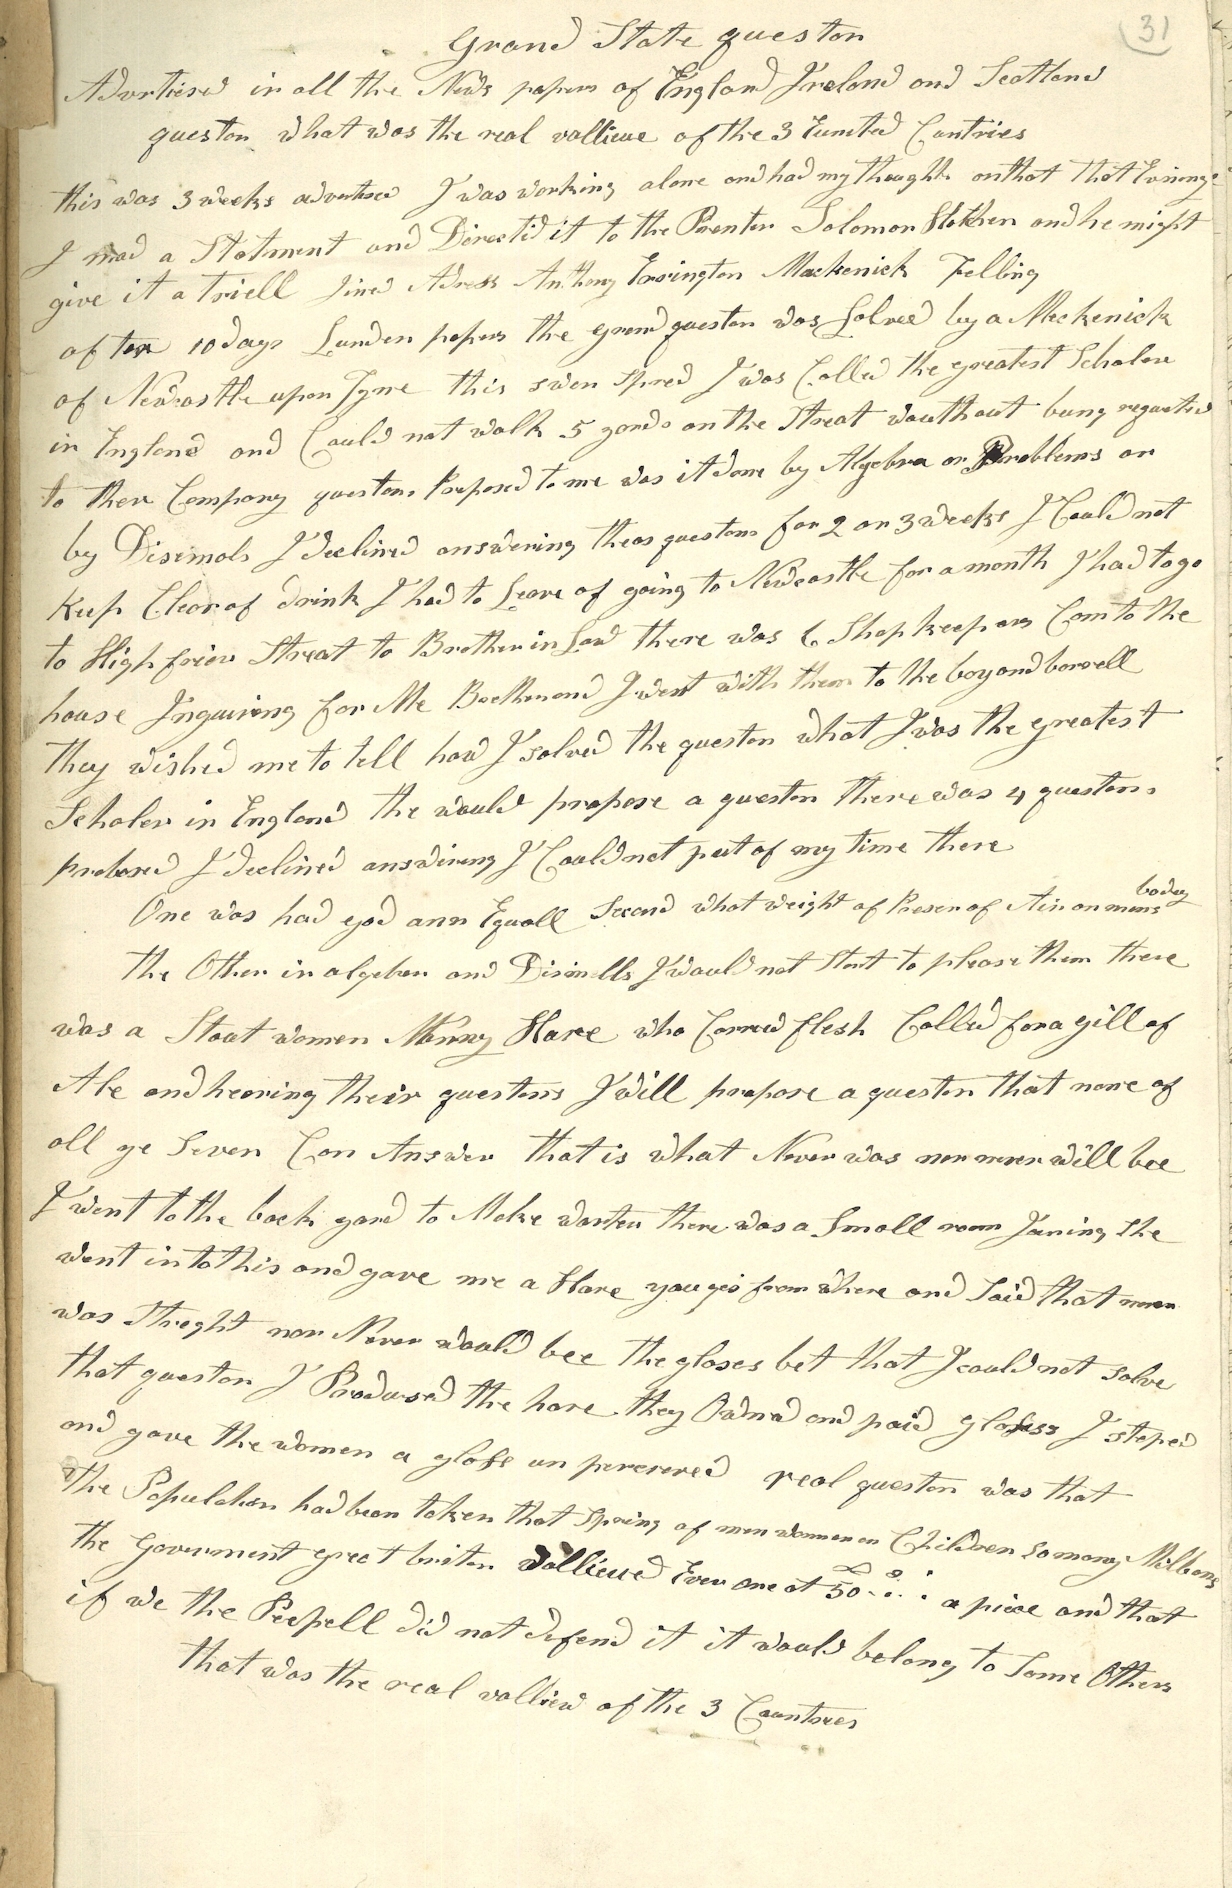 31
Grand State queston
Advrtiesed in all the News papers of England Ireland and Scotland
queston what was the real vallieue of the 3 Eunited Cuntries
this was 3 weeks advertised I was working alone and had my thought on that that Evning
I mad a Statment and Directid it to the Prenter Solomon Hokken and he might
give it a Triell Sined Adress Anthony Errington Mackenick Felling
after 10 days Lunden papers the grand queston was Solved by a Meckenick
of Newcastle upon Tyne this swen spred I was Calld the greatest Scholer
in England and Could not walk 5 yards on the Streat wauthout bung requsted
to ther Compony questons Proposed to me was it done by Algebra or Problems or
by Disemols I declined answering theas questons for 2 or 3 weeks I Could not
Keep Clear of drink I had to Leave of going to Newcastle for a month I had to go
to High frier Streat to Brother in Law there was 6 Shopkeepers Com to the
house Inquiring for Me Backen and I went with them to the boy and barrell
they wished me to tell how I solved the queston what I was the greatest
Scholer in England the would propose a queston there was 4 questons
probosed I declined answiring I Could not put of my time there
One was had god ann Equall Second what weight of Preser of Air on mans body
the Other in algeber and Disimells I would not Start to please them there
was a Stoat women Nanny Hare who Carred flesh Called for a gill of
Ale and hearing their questons I will propose a queston that none of
all ye Seven Con Answer that is what Never was nor never will bee
I went to the back yard to Make warter there was a Small room Joining She
went in to this and gave me a Hare you geo from where and Said that never
was Streght nor Never would bee the glases bet that I could not solve
that queston I Prodused the hare they Owned and paid glasses I steped
and gave the women a glass un percerved real queston was that
the Population had been taken that Spring of men women or Children so many Millions
the Government great briton Vallieued Ever one at 50 a piece and that
if we the Peepell did not defend it it would belong to Some Others
that was the real valliew of the 3 Countrees